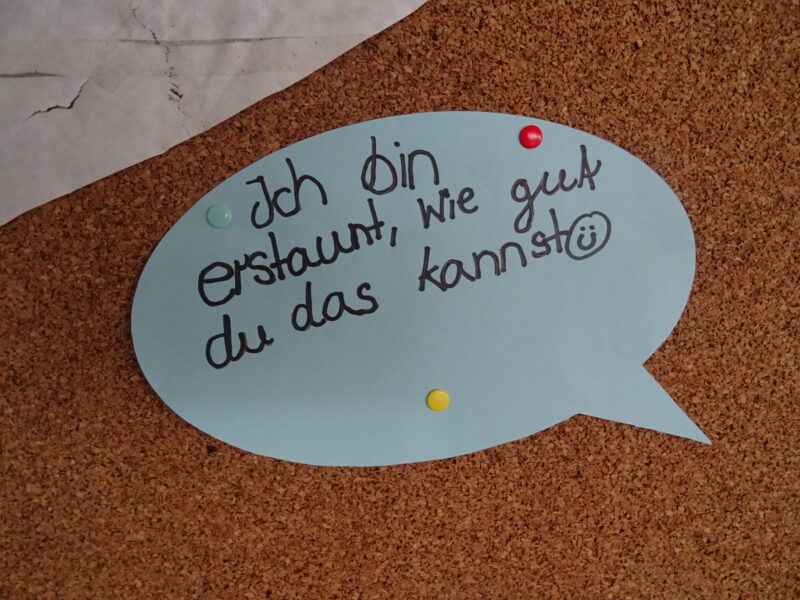 Ich bin
erstaunt, wie gut
du das kannst☺